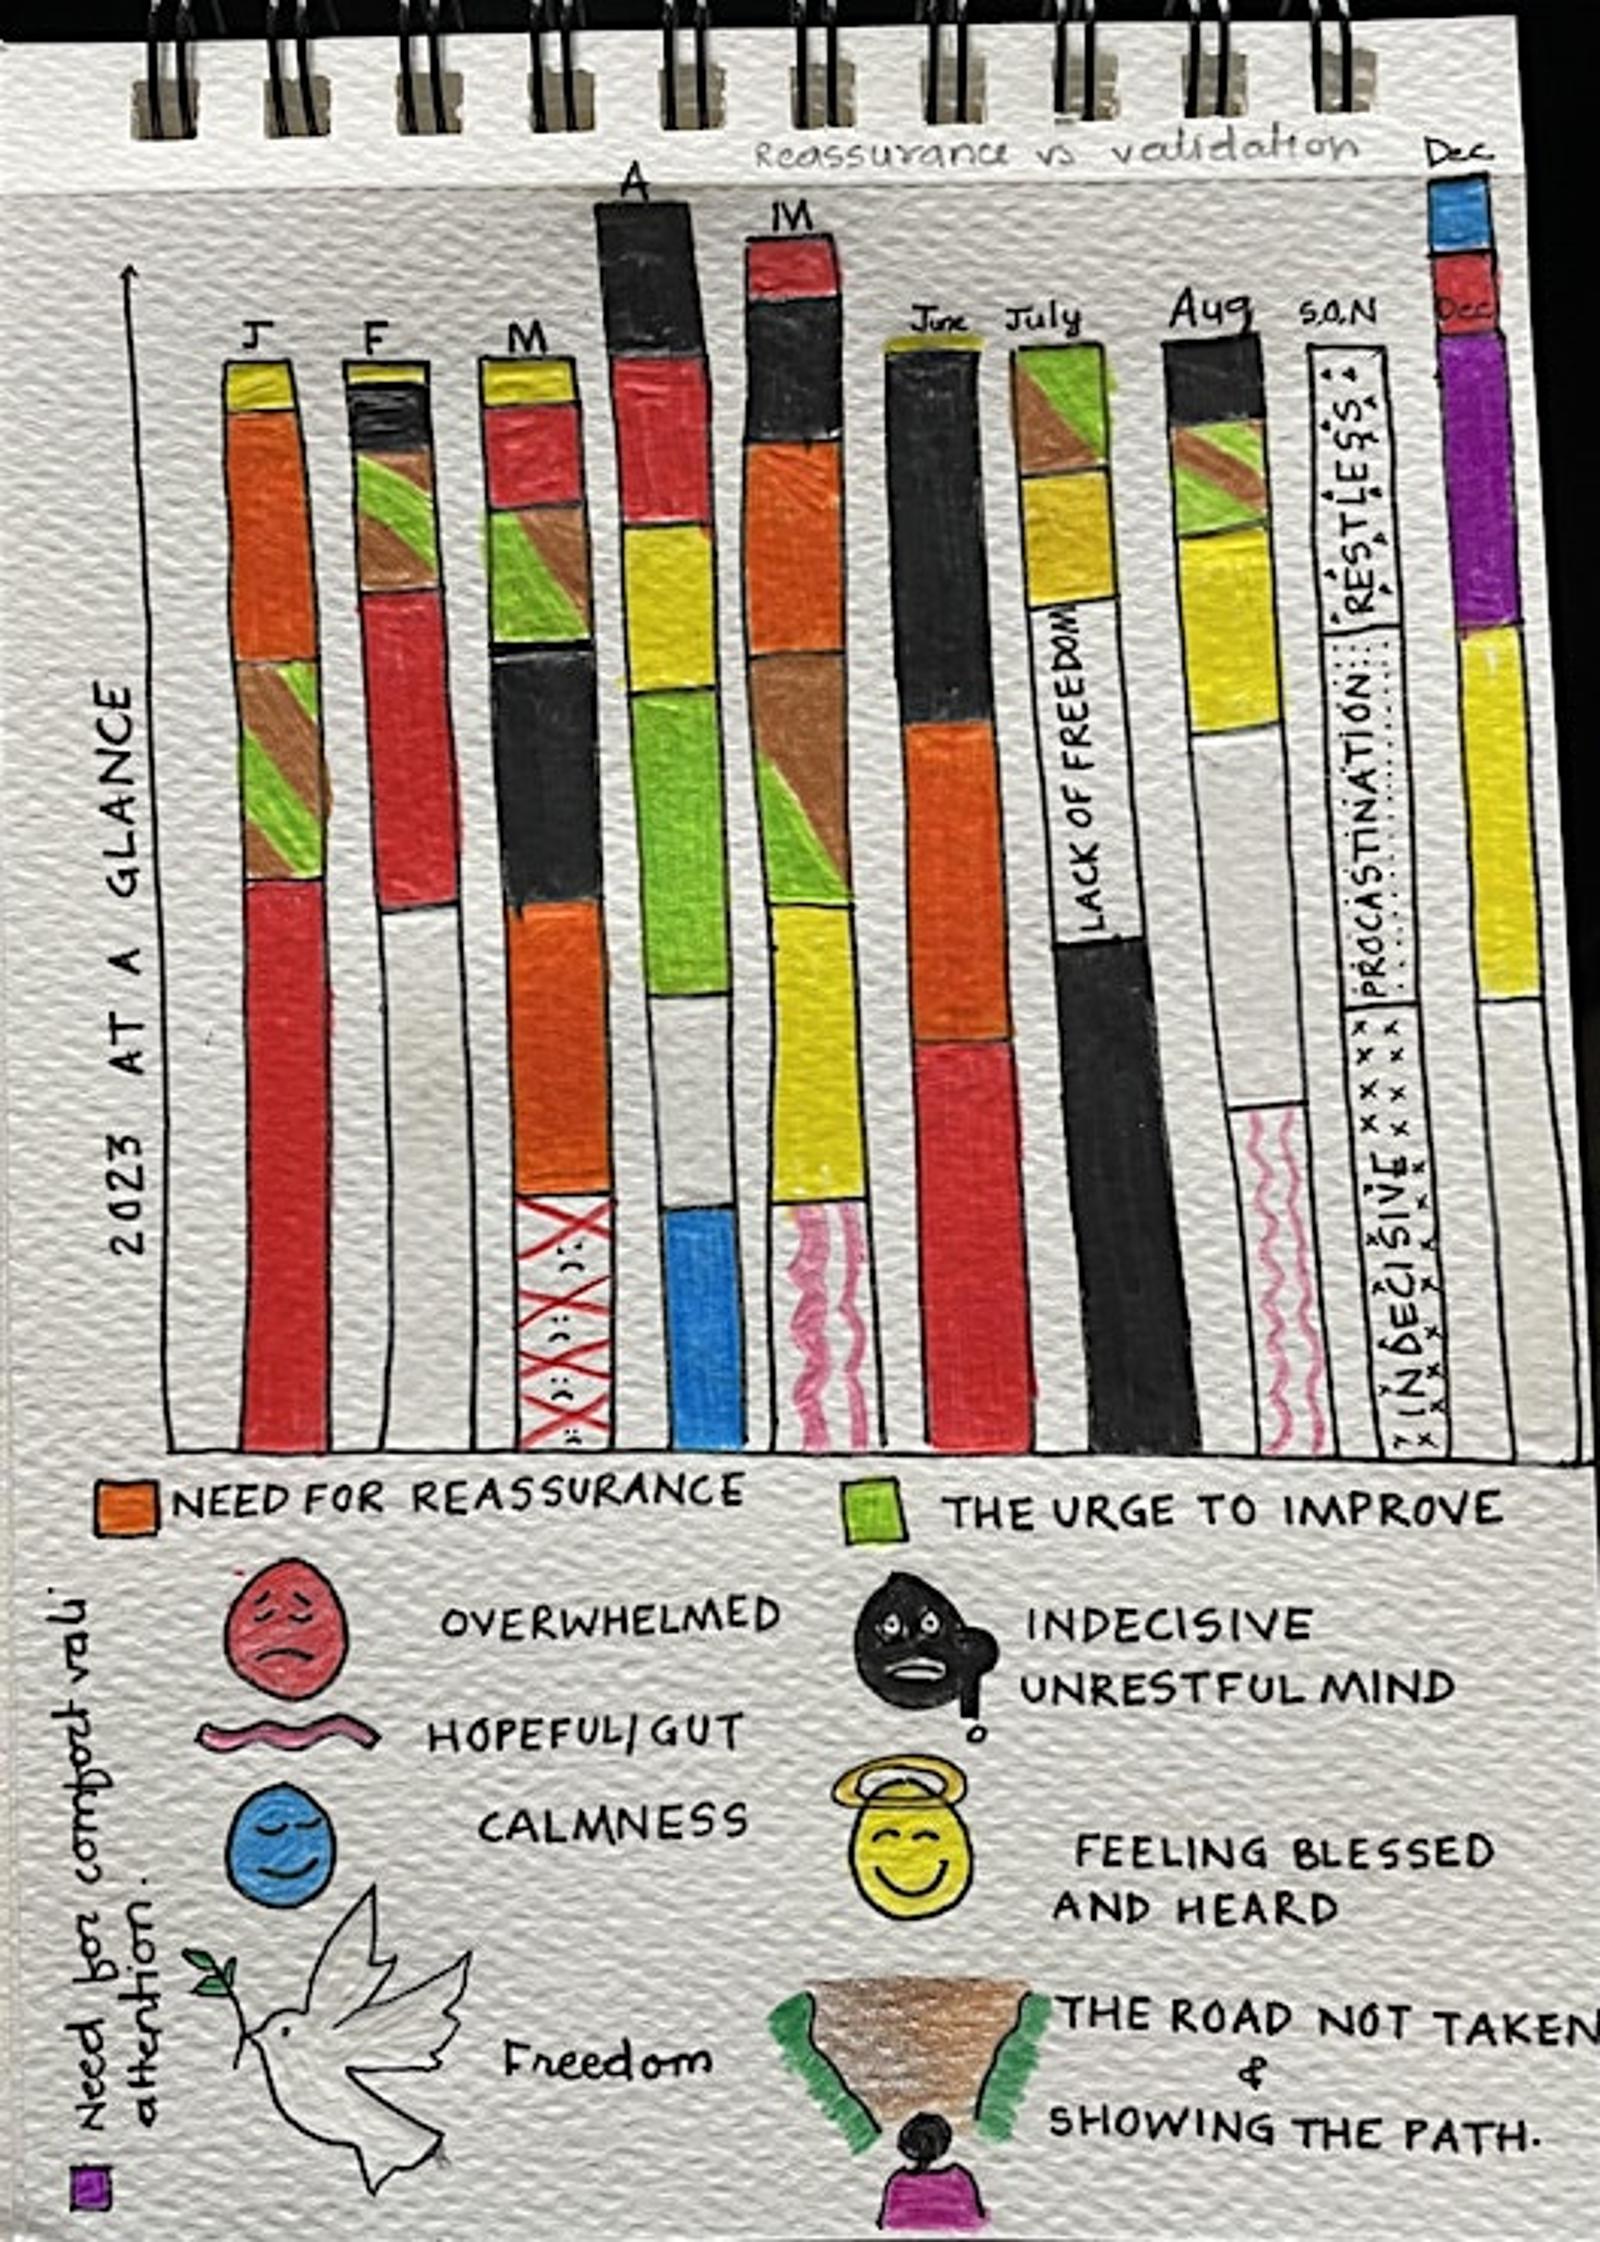 Reassurance vs validation
Dec
A
M
J
F
M
June
July
Aug
S.O.N
Dec
2023 AT A GLANCE
LACK OF FREEDOM
RESTLESS
PROCASTINATION
INDECISIVE
NEED FOR REASSURANCE
THE URGE TO IMPROVE
OVERWHELMED
INDECISIVE
UNRESTFUL MIND
HOPEFUL/GUT
CALMNESS
FEELING BLESSED
AND HEARD
Freedom
THE ROAD NOT TAKEN
&
SHOWING THE PATH.
Need for comfort, vali.
attention.